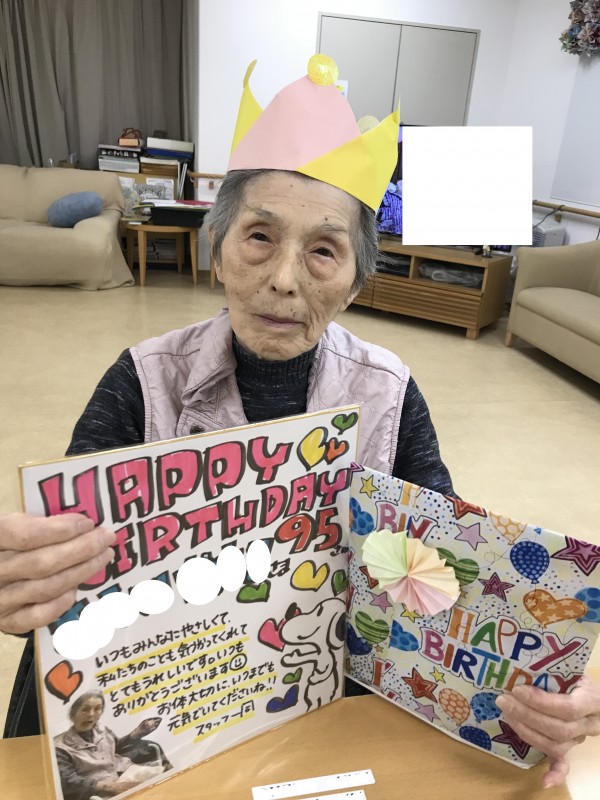 HAPPY
BIRTHDAY
95
さま
いつもみんなにやさしくて、
私たちのことも気づかってくれて
とてもうれしいです。いつも
ありがとうございます
お体大切に、いつまでも
元気でいてくださいね!!
スタッフ一同
HAPPY
BIRTHDAY